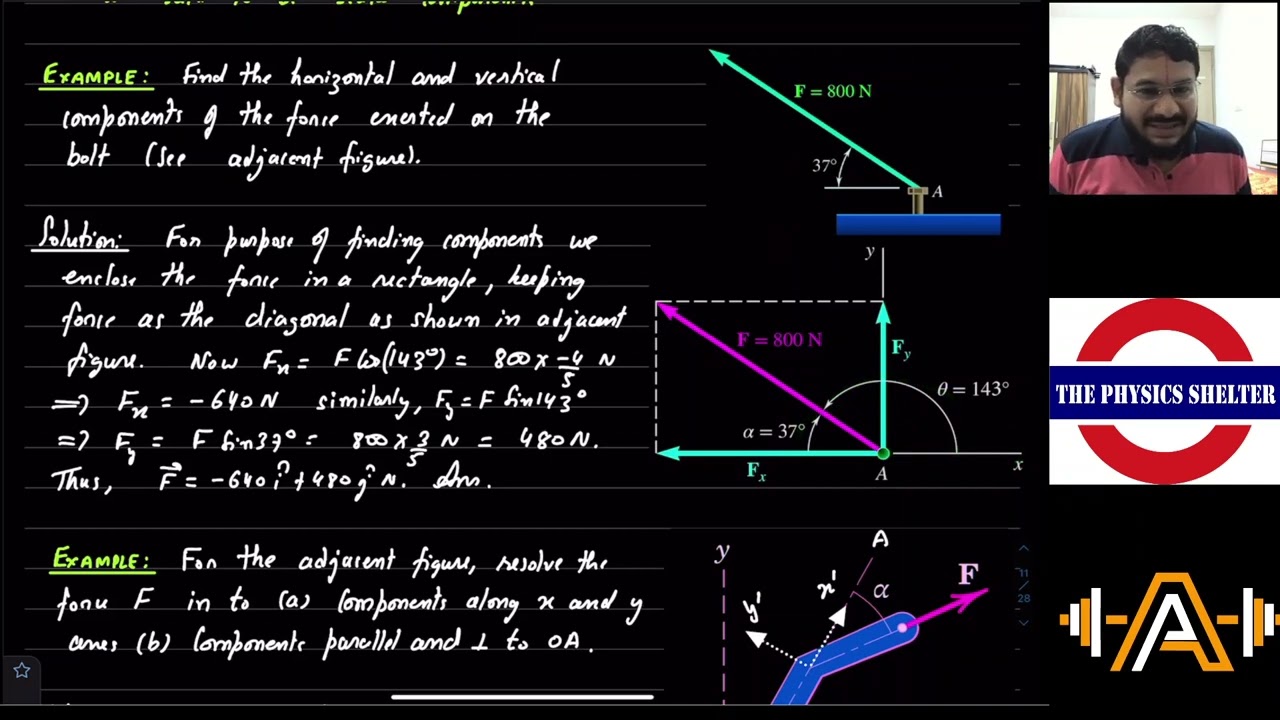 EXAMPLE: Find the horizontal and vertical
components of the force exerted on the
bolt (see adjacent figure).
F = 800 N
37°
A
Solution: For purpose of finding components we
enclose the force in a rectangle, keeping
force as the diagonal as shown in adjacent
figure. Now Fx = F Cos(143°) = 800 × -4/5 N
=> Fx = -640 N similarly, Fy = F Sin143°
=> Fy = F Sin37° = 800 × 3/5 N = 480 N.
Thus, F⃗ = -640 î + 480 ĵ N. Ans.
y
F = 800 N
Fy
θ = 143°
α = 37°
Fx
A
x
EXAMPLE: For the adjacent figure, resolve the
force F in to (a) Components along x and y
axes (b) Components parallel and ⊥ to OA.
y
A
x'
α
F
y'
11
28
THE PHYSICS SHELTER
A